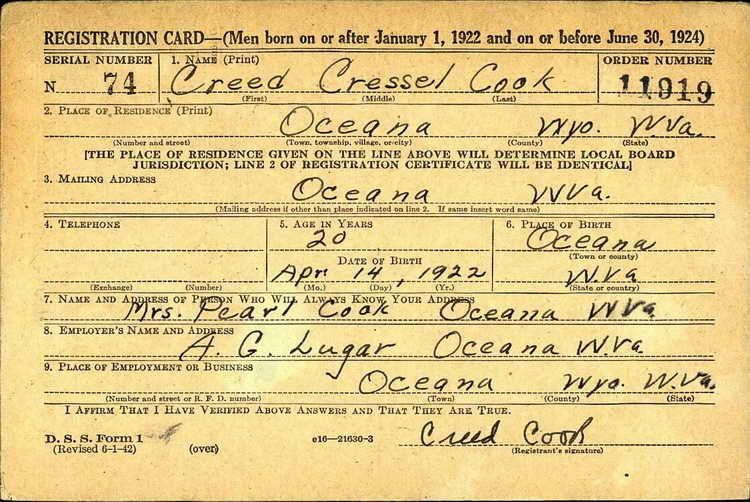 REGISTRATION CARD—(Men born on or after January 1, 1922 and on or before June 30, 1924)
SERIAL NUMBER 1. NAME (Print) ORDER NUMBER
N 74 Creed Cressel Cook 11919
(First) (Middle) (Last)
2. PLACE OF RESIDENCE (Print)
Oceana Wyo. WVa.
(Number and street) (Town, township, village, or city) (County) (State)
[THE PLACE OF RESIDENCE GIVEN ON THE LINE ABOVE WILL DETERMINE LOCAL BOARD
JURISDICTION; LINE 2 OF REGISTRATION CERTIFICATE WILL BE IDENTICAL]
3. MAILING ADDRESS
Oceana WVa.
(Mailing address if other than place indicated on line 2. If same insert word same)
4. TELEPHONE 5. AGE IN YEARS 6. PLACE OF BIRTH
20 Oceana
(Town or county)
DATE OF BIRTH
Apr 14, 1922 W.Va
(Exchange) (Number) (Mo.) (Day) (Yr.) (State or country)
7. NAME AND ADDRESS OF PERSON WHO WILL ALWAYS KNOW YOUR ADDRESS
Mrs. Pearl Cook Oceana WVa.
8. EMPLOYER'S NAME AND ADDRESS
A. G. Lugar Oceana W.Va.
9. PLACE OF EMPLOYMENT OR BUSINESS
Oceana Wyo. W.Va.
(Number and street or R. F. D. number) (Town) (County) (State)
I AFFIRM THAT I HAVE VERIFIED ABOVE ANSWERS AND THAT THEY ARE TRUE.
D. S. S. Form 1
(Revised 6-1-42) (over) e16—21630-3 Creed Cook
(Registrant's signature)